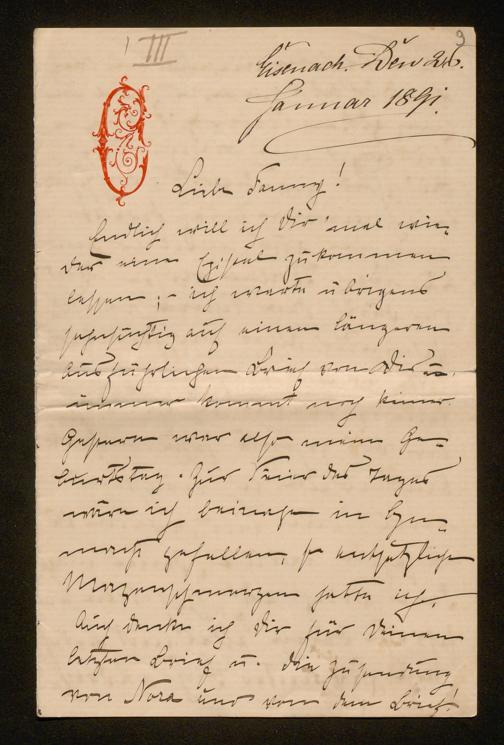 III
9
Eisenach. Den 26.
Januar 1891.
Liebe Fanny!
Endlich will ich Dir 'mal wie-
der eine Epistel zukommen
lassen; – ich warte übrigens
sehnsüchtig auf einen längeren
ausführlichen Brief von Dir u.
immer kommt noch keiner.
Gestern war also mein Ge-
burtstag. Zur Feier des Tages
wäre ich beinahe in Ohn-
macht gefallen, so entsetzliche
Magenschmerzen hatte ich.
Auch danke ich Dir für Deinen
letzten Brief u. die Zusendung
von Nora und von dem Brief!